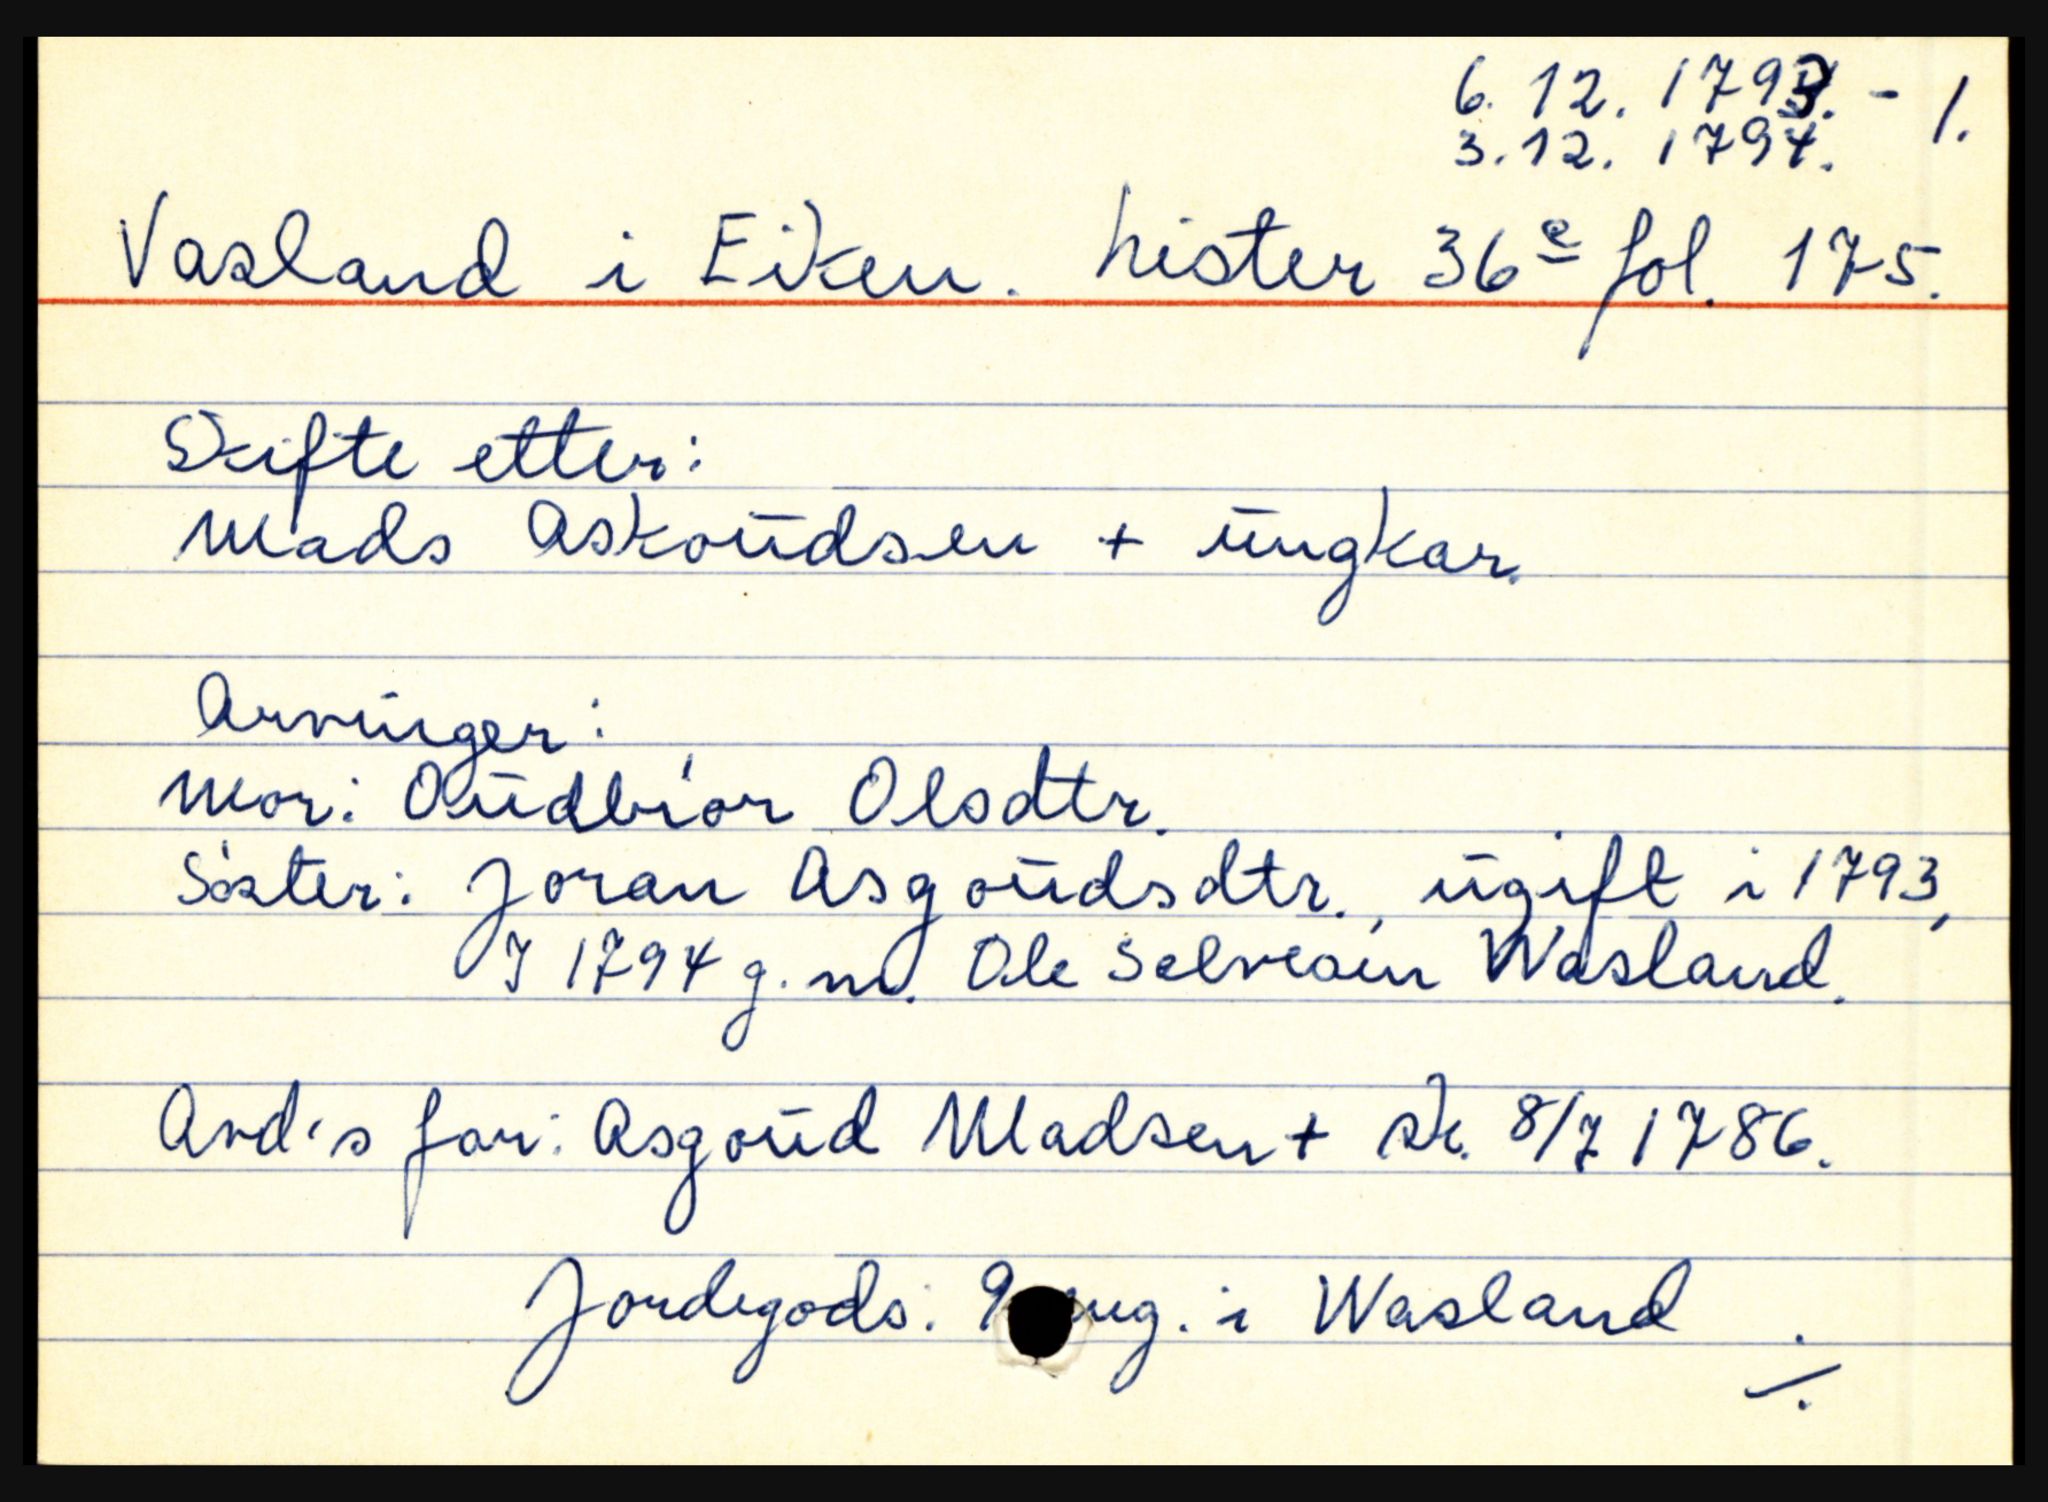 6. 12. 1793. - 1.
3. 12. 1794.
Vasland i Eiken. Lister 36e fol. 175.
Skifte etter:
Mads Askoudsen + ungkar.
Arvinger:
Mor: Oudbiør Olsdtr.
Søster: Joran Asgoudsdtr., ugift i 1793,
I 1794 g. m. Ole Salveøin Wasland.
Avd's far: Asgoud Madsen + sk. 8/7 1786.
Jordegods: 9 eng. i Wasland